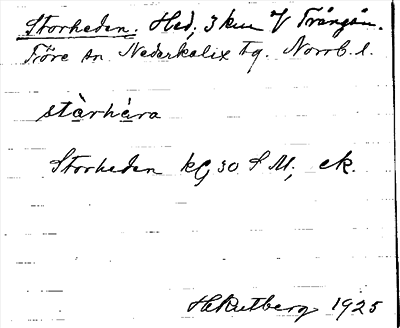 Storheden. Hed, 3 km V Trångån.
Töre sn Nederkalix tg. Norrb. l.
stàrhèra
Storheden kG 30 S M, ek.
H Rutberg 1925